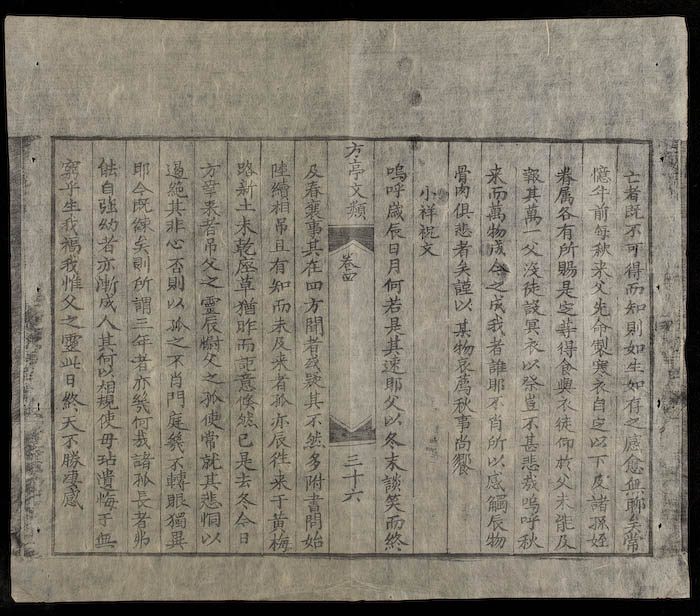 亡者既不可得而知則如生如存之感愈無聊矣常
憶年前每秋來父先命製寒衣自定以下及諸孫姪
眷屬各有所賜是定輩得食與衣徒仰於父未能及
報其萬一父沒徒設冥衣以祭豈不甚悲哉嗚呼秋
來而萬物成今之成我者誰耶不肖所以感觸辰物
骨肉俱悲者矣謹以某物哀薦秋事尚饗
小祥祝文
嗚呼歲辰日月何若是其速耶父以冬末談笑而終
方亭文類 卷四 三十六
及春襄事其在四方聞者或疑其不然多附書問始
陸續相吊且有知而未及來者孤亦辰徃來于黃梅
路新土未乾塵草猶昨而詎意倏然已是去冬今日
方辱來者吊父之靈辰慰父之孤使常就其悲恫以
遏絕其非心否則以孤之不肖門庭幾不轉眼獨異
耶今既練矣則所謂三年者亦幾何哉諸孤長者弗
能自強幼者亦漸成人其何以相規使毋玷遺悔于無
窮乎生我福我惟父之靈此日終天不勝凄感